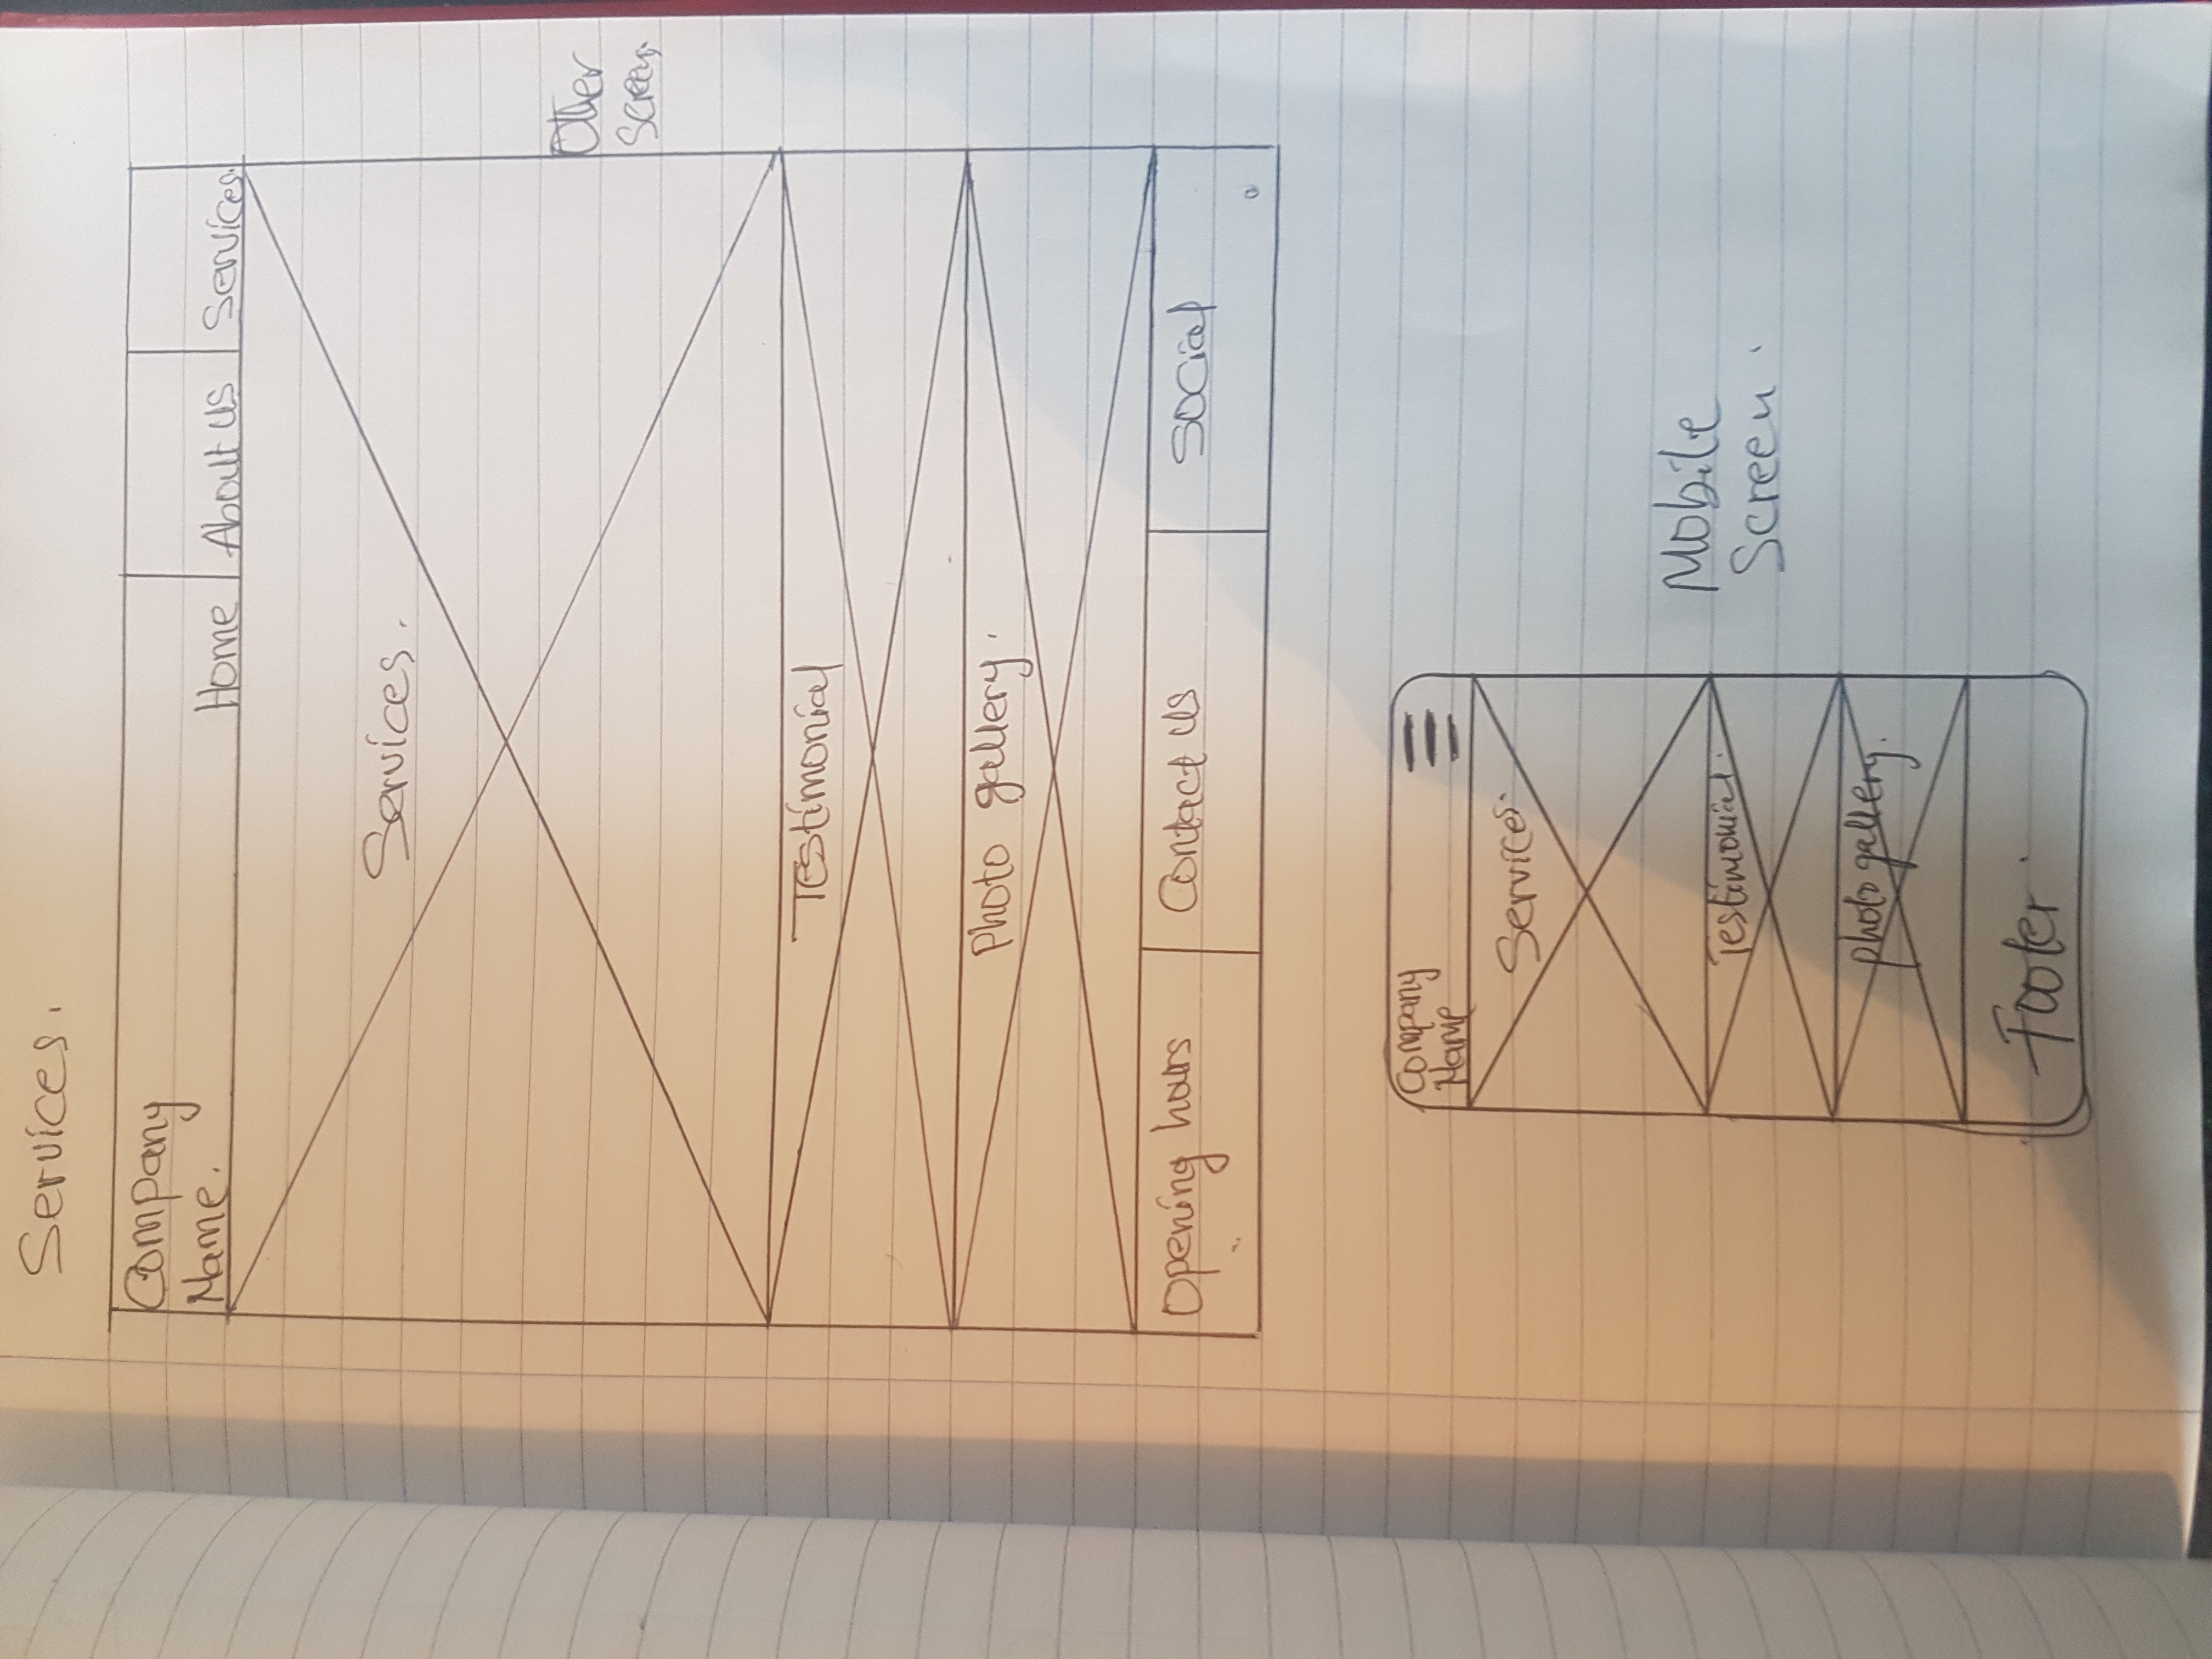 Services.
Company
Name.
Home About Us Services.
Services.
Other
Screen.
Testimonial
Photo gallery.
Opening hours Contact Us Social
Company
Name
Services.
Testimonial.
Photo gallery.
Footer.
Mobile
Screen.